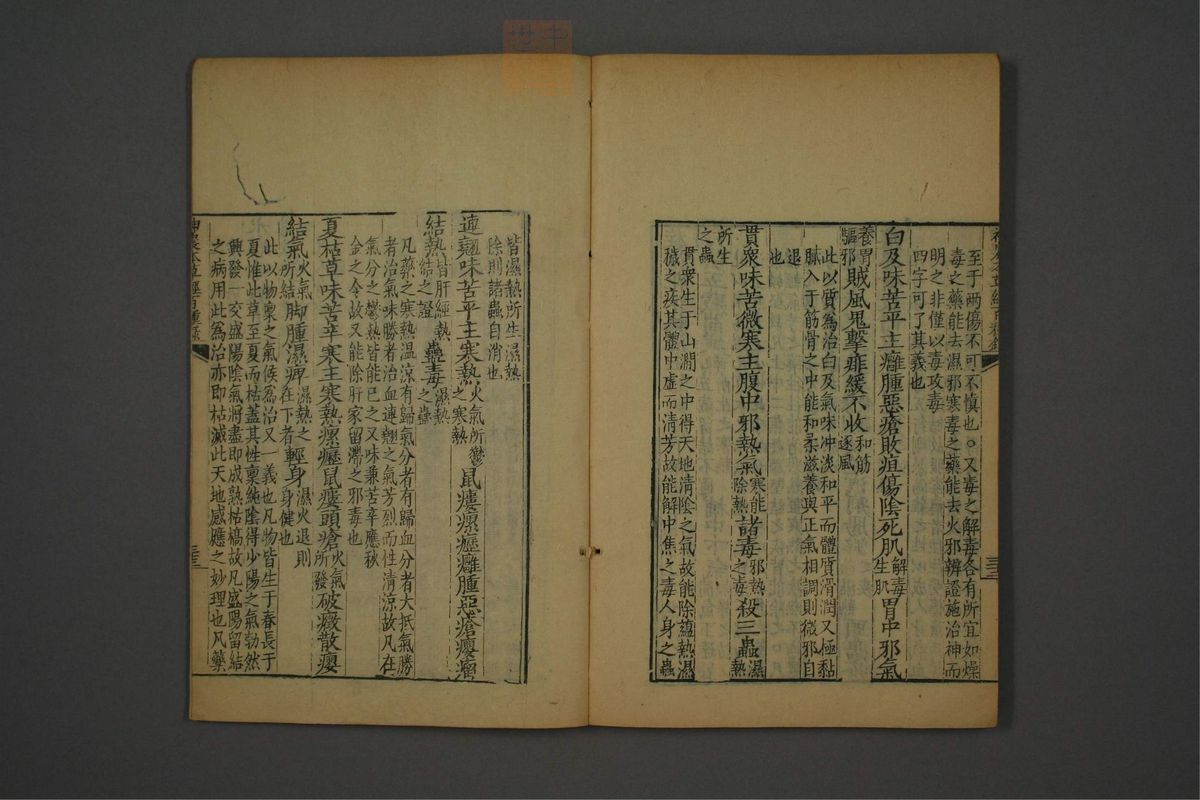 至于两傷不可不慎也○又毒之解毒各有所宜如燥
毒之藥能去濕邪寒毒之藥能去火邪辨證施治神而
明之非僅以毒攻毒
四字可了其義也
白及味苦平主癰腫惡瘡敗疽傷陰死肌解毒生肌胃中邪氣
養胃驅邪賊風鬼擊痱緩不收和筋逐風
此以質為治白及氣味冲淡和平而體質滑潤又極黏
膩入于筋骨之中能和柔滋養與正氣相調則微邪自
退
也
貫衆味苦微寒主腹中邪熱氣寒能除熱諸毒邪熱之毒殺三蟲濕熱
所生之蟲
貫衆生于山澗之中得天地清陰之氣故能除蘊熱濕
穢之疾其體中虛而清芳故能解中焦之毒人身之蟲
皆濕熱所生濕熱
除則諸蟲自消也
連翹味苦平主寒熱火氣所鬱之寒熱鼠瘻瘰癧癰腫惡瘡癭瘤
結熱皆肝經熱結之證蠱毒濕熱之蟲
凡藥之寒熱溫涼有歸氣分者有歸血分者大抵氣勝
者治氣味勝者治血連翹之氣芳烈而性清涼故凡在
氣分之鬱熱皆能已之又味兼苦辛應秋
金之令故又能除肝家留滯之邪毒也
夏枯草味苦辛寒主寒熱瘰癧鼠瘻頭瘡火氣所發破癥散癭
結氣火氣所結脚腫濕痹濕熱之在下者輕身濕火退則身健也
此以物稟之氣候為治又一義也凡物皆生于春長于
夏惟此草至夏而枯蓋其性稟純陰得少陽之氣勃然
興發一交盛陽陰氣將盡即成熟枯槁故凡盛陽留結
之病用此為治亦即枯滅此天地感應之妙理也凡藥